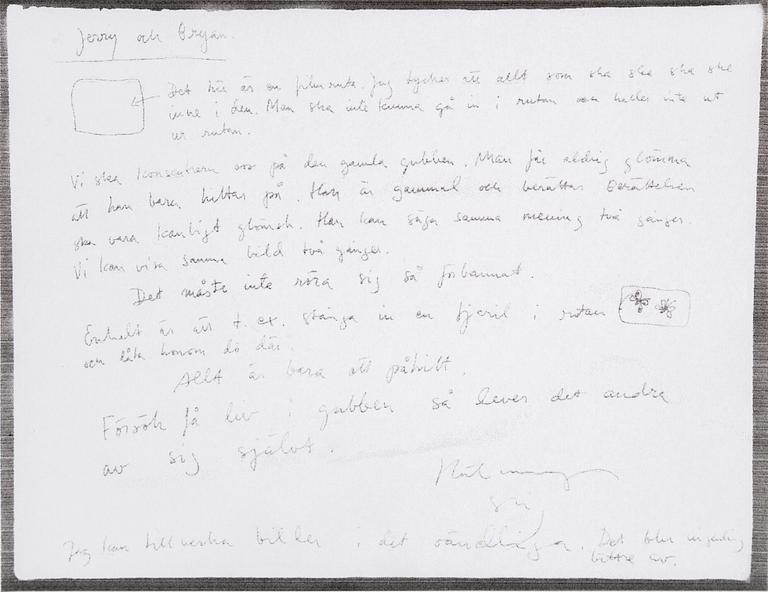 Jerry och Brejan.
Det här är en filmruta. Jag tycker att allt som ska ska ska ske
inne i den. Man ska inte kunna gå in i rutan och heller inte ut
ur rutan.
Vi ska koncentrera oss på den gamla gubben. Man får aldrig glömma
att han bara hittar på. Han är gammal och berättar. Berättelsen
ska vara kantigt glömsk. Han kan säga samma mening två gånger.
Vi kan visa samma bild två gånger.
Det måste inte röra sig så förbannat.
Enkelt är att t.ex. stänga in en fjäril i rutan
och låta honom dö där.
Allt är bara ett påhitt.
Försök få liv i gubben så lever det andra
av sig självt.
Jag kan tillverka bilder i det oändliga. Det blir ingenting
bättre av.